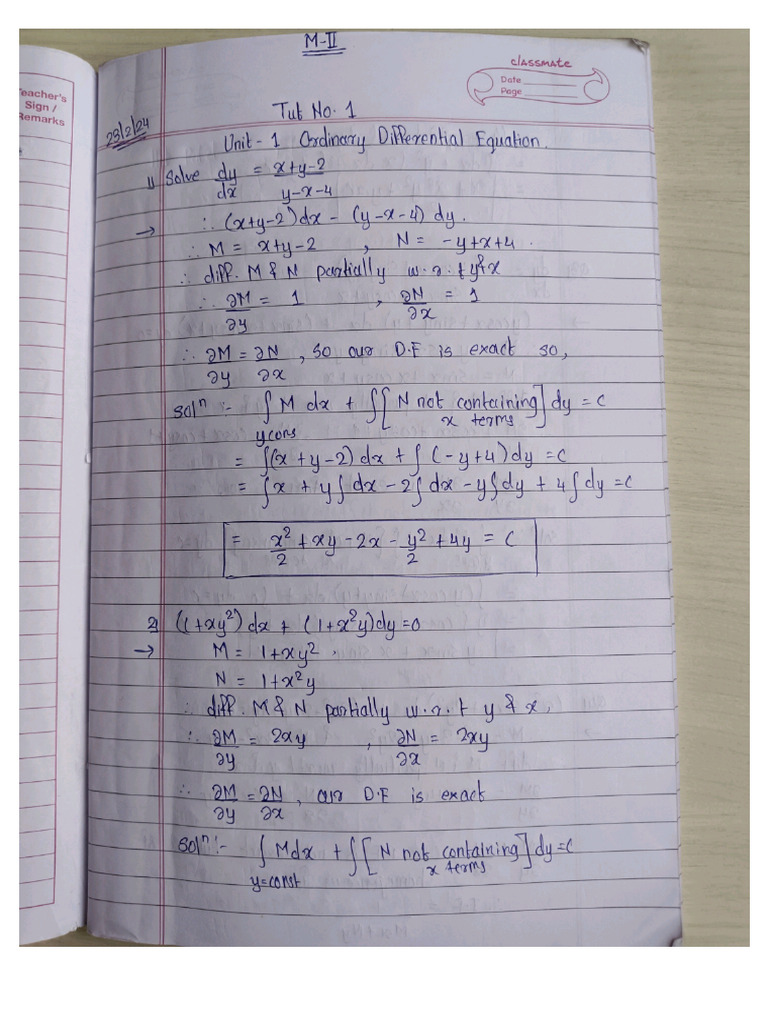 M-II
classmate
Date
Page
Teacher's
Sign /
Remarks
23/2/24
Tut No. 1
Unit-1 Ordinary Differential Equation.
1) Solve dy/dx = x+y-2/y-x-4
→ ∴ (x+y-2)dx - (y-x-4)dy.
∴ M = x+y-2 , N = -y+x+4.
∴ diff. M & N partially w.r.t y&x
∴ ∂M/∂y = 1 , ∂N/∂x = 1
∴ ∂M/∂y = ∂N/∂x , so our D.F is exact so,
solⁿ :- ∫ M dx + ∫[N not containing x terms] dy = c
y cons
= ∫(x+y-2)dx + ∫(-y+4)dy = c
= ∫x + y∫dx - 2∫dx - y∫dy + 4∫dy = c
= x²/2 + xy - 2x - y²/2 + 4y = c
2) ((1+xy²)dx + (1+x²y)dy=0
→ M = 1+xy².
N = 1+x²y
∴ diff. M & N partially w.r.t y & x,
∴ ∂M/∂y = 2xy , ∂N/∂x = 2xy
∴ ∂M/∂y = ∂N/∂x , our D.F is exact
solⁿ :- ∫ Mdx + ∫[N not containing x terms] dy = c
y=const